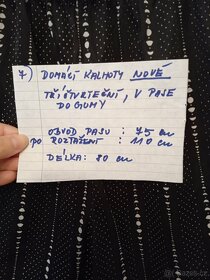 7) DOMÁCÍ KALHOTY NOVÉ
TŘÍČTVRTEČNÍ, V PASE
DO GUMY
OBVOD PASU : 75 cm
PO ROZTAŽENÍ : 110 cm
DÉLKA: 80 cm